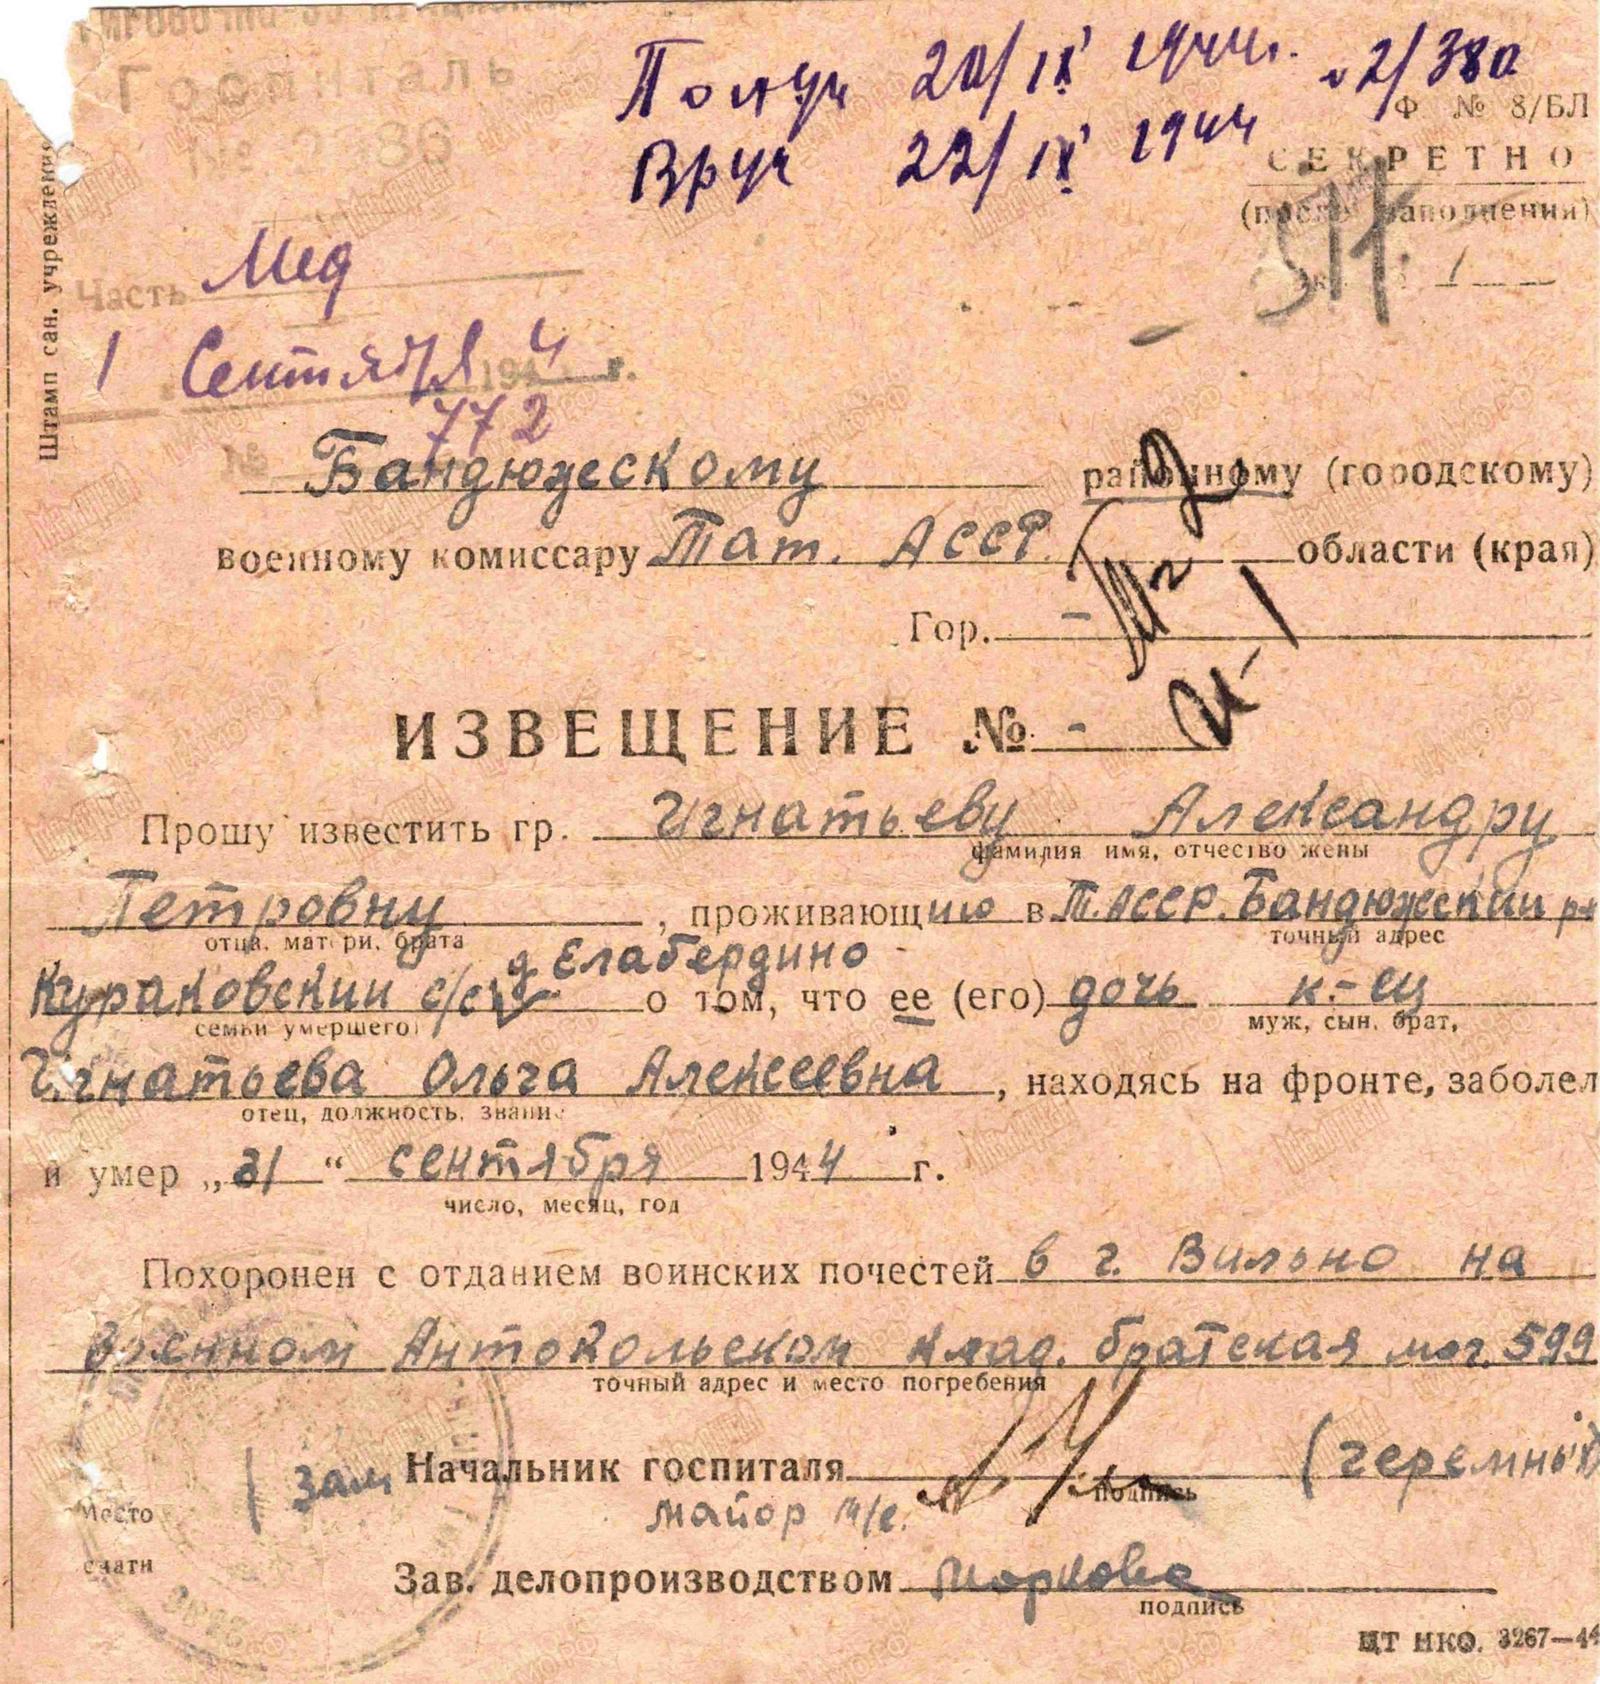 Госпиталь
Получ 20/IX 1944г. №2/380
Вруч 22/IX 1944
Ф № 8/БЛ
СЕКРЕТНО
(после заполнения)
Штамп сан. учреждения
Часть Мед
1 Сентября 1944 г.
№ 772
Бандюжескому районному (городскому)
военному комиссару Тат. АССР. области (края)
Гор. -
И-1
ИЗВЕЩЕНИЕ № -
Прошу известить гр. Игнатьеву Александру
фамилия имя, отчество жены
Петровну, проживающую в Т.АССР. Бандюжский р-н
отца, матери, брата
точный адрес
Кураковский с/с д Елабердино о том, что ее (его) дочь к-ец
семьи умершего
муж, сын, брат,
Игнатьева Ольга Алексеевна, находясь на фронте, заболел
отец, должность, звание
и умер „31“ сентября 1944 г.
число, месяц, год
Похоронен с отданием воинских почестей в г. Вильно на
военном Антокольском клад. братская мог. 599
точный адрес и место погребения
Зам Начальник госпиталя (Черемных)
подпись
майор м/с.
Место
печати
Зав. делопроизводством Маркова
подпись
ЦТ НКО. 3267—44